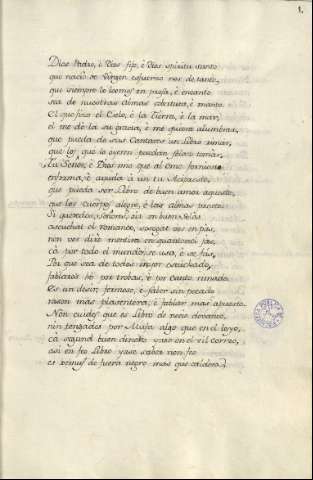 1.
Dios Padre, è Dios fijo, è Dios spiritu santo
que nació de Virgen esfuerzo nos de tanto,
que siempre lo loemos en prosa, è en canto
sea de nuestras almas cobertura, è manto.
El que fizo el Cielo, è la Tierra, è la mar,
el me dè la su gracia, è me quiera alumbrar,
que pueda de sus Cantares un libro rimar,
que los que lo oyeren puedan solaz tomar.
Tu Señor, è Dios mio que al ome formaste
enforma, è ayuda à un tu Acipreste,
que pueda ser Libro de buen amor aqueste,
que los Cuerpos alegre, è las almas preste.
Si queredes, señores, oir un buen solàs
ascuchat el romance, sosegat vos en pas,
non vos dire mentira en quanto en el jas,
cà por todo el mundo se usa, è se fas,
Por que sea de todos mejor escuchado,
fablarvos hè por trobas, è por canto rimado
es un desir fermoso, è saber sin pecado
rason mas plasentera, è fablar mas apuesto.
Non cuides que es Libro de necio devaneo,
nin tengades por chufa algo que en el leyo,
cà segund buen dinero yase en vil correo,
asi en feo Libro yase saber non feo
es xenus de fuera negro mas que caldera